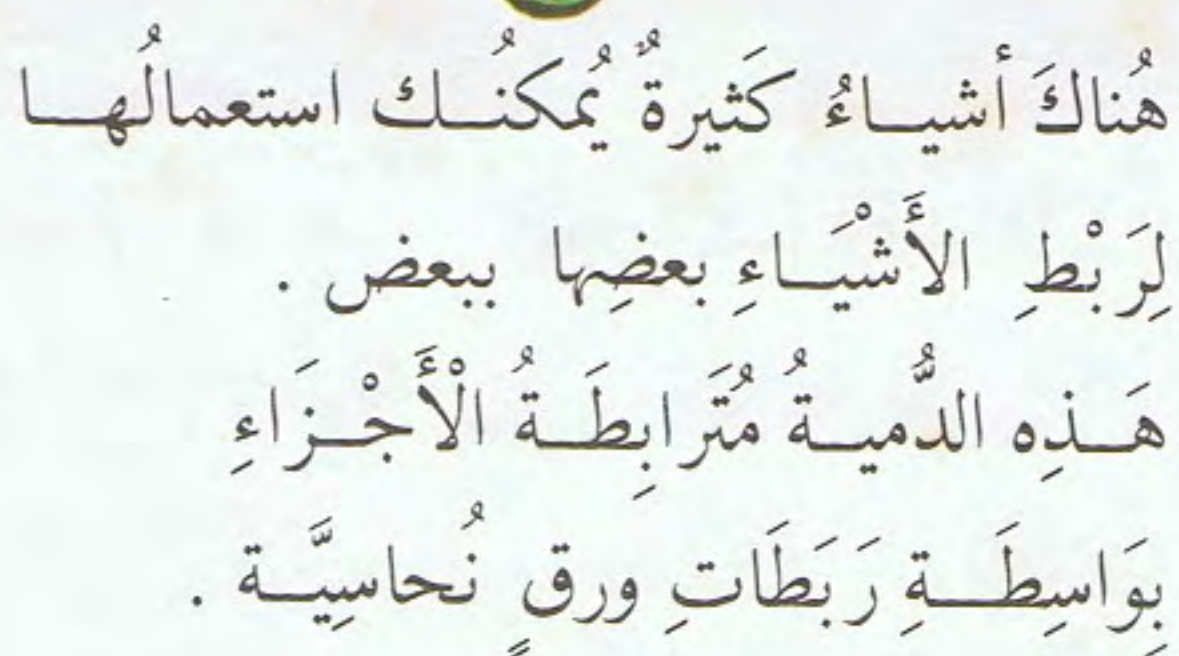 هُناكَ أشيــاءُ كَثيرةٌ يُمكنُــك استعمالُهــا
لِرَبْطِ الأَشْيَــاءِ بعضِها ببعض .
هَــذِه الدُّميــةُ مُتَرابِطَــةُ الْأَجْــزَاءِ
بِوَاسِطَــةِ رَبَطَاتِ ورقٍ نُحاسِيَّــة .